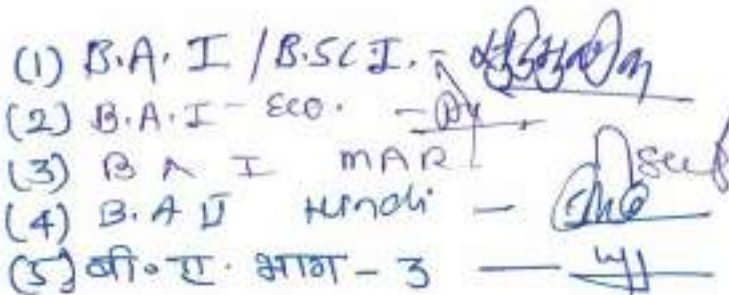 (1) B.A. I / B.SC I. -
(2) B.A. I - ECO. -
(3) B A I MAR
(4) B.A II Hindi -
(5) बी॰ ए. भाग - 3 -